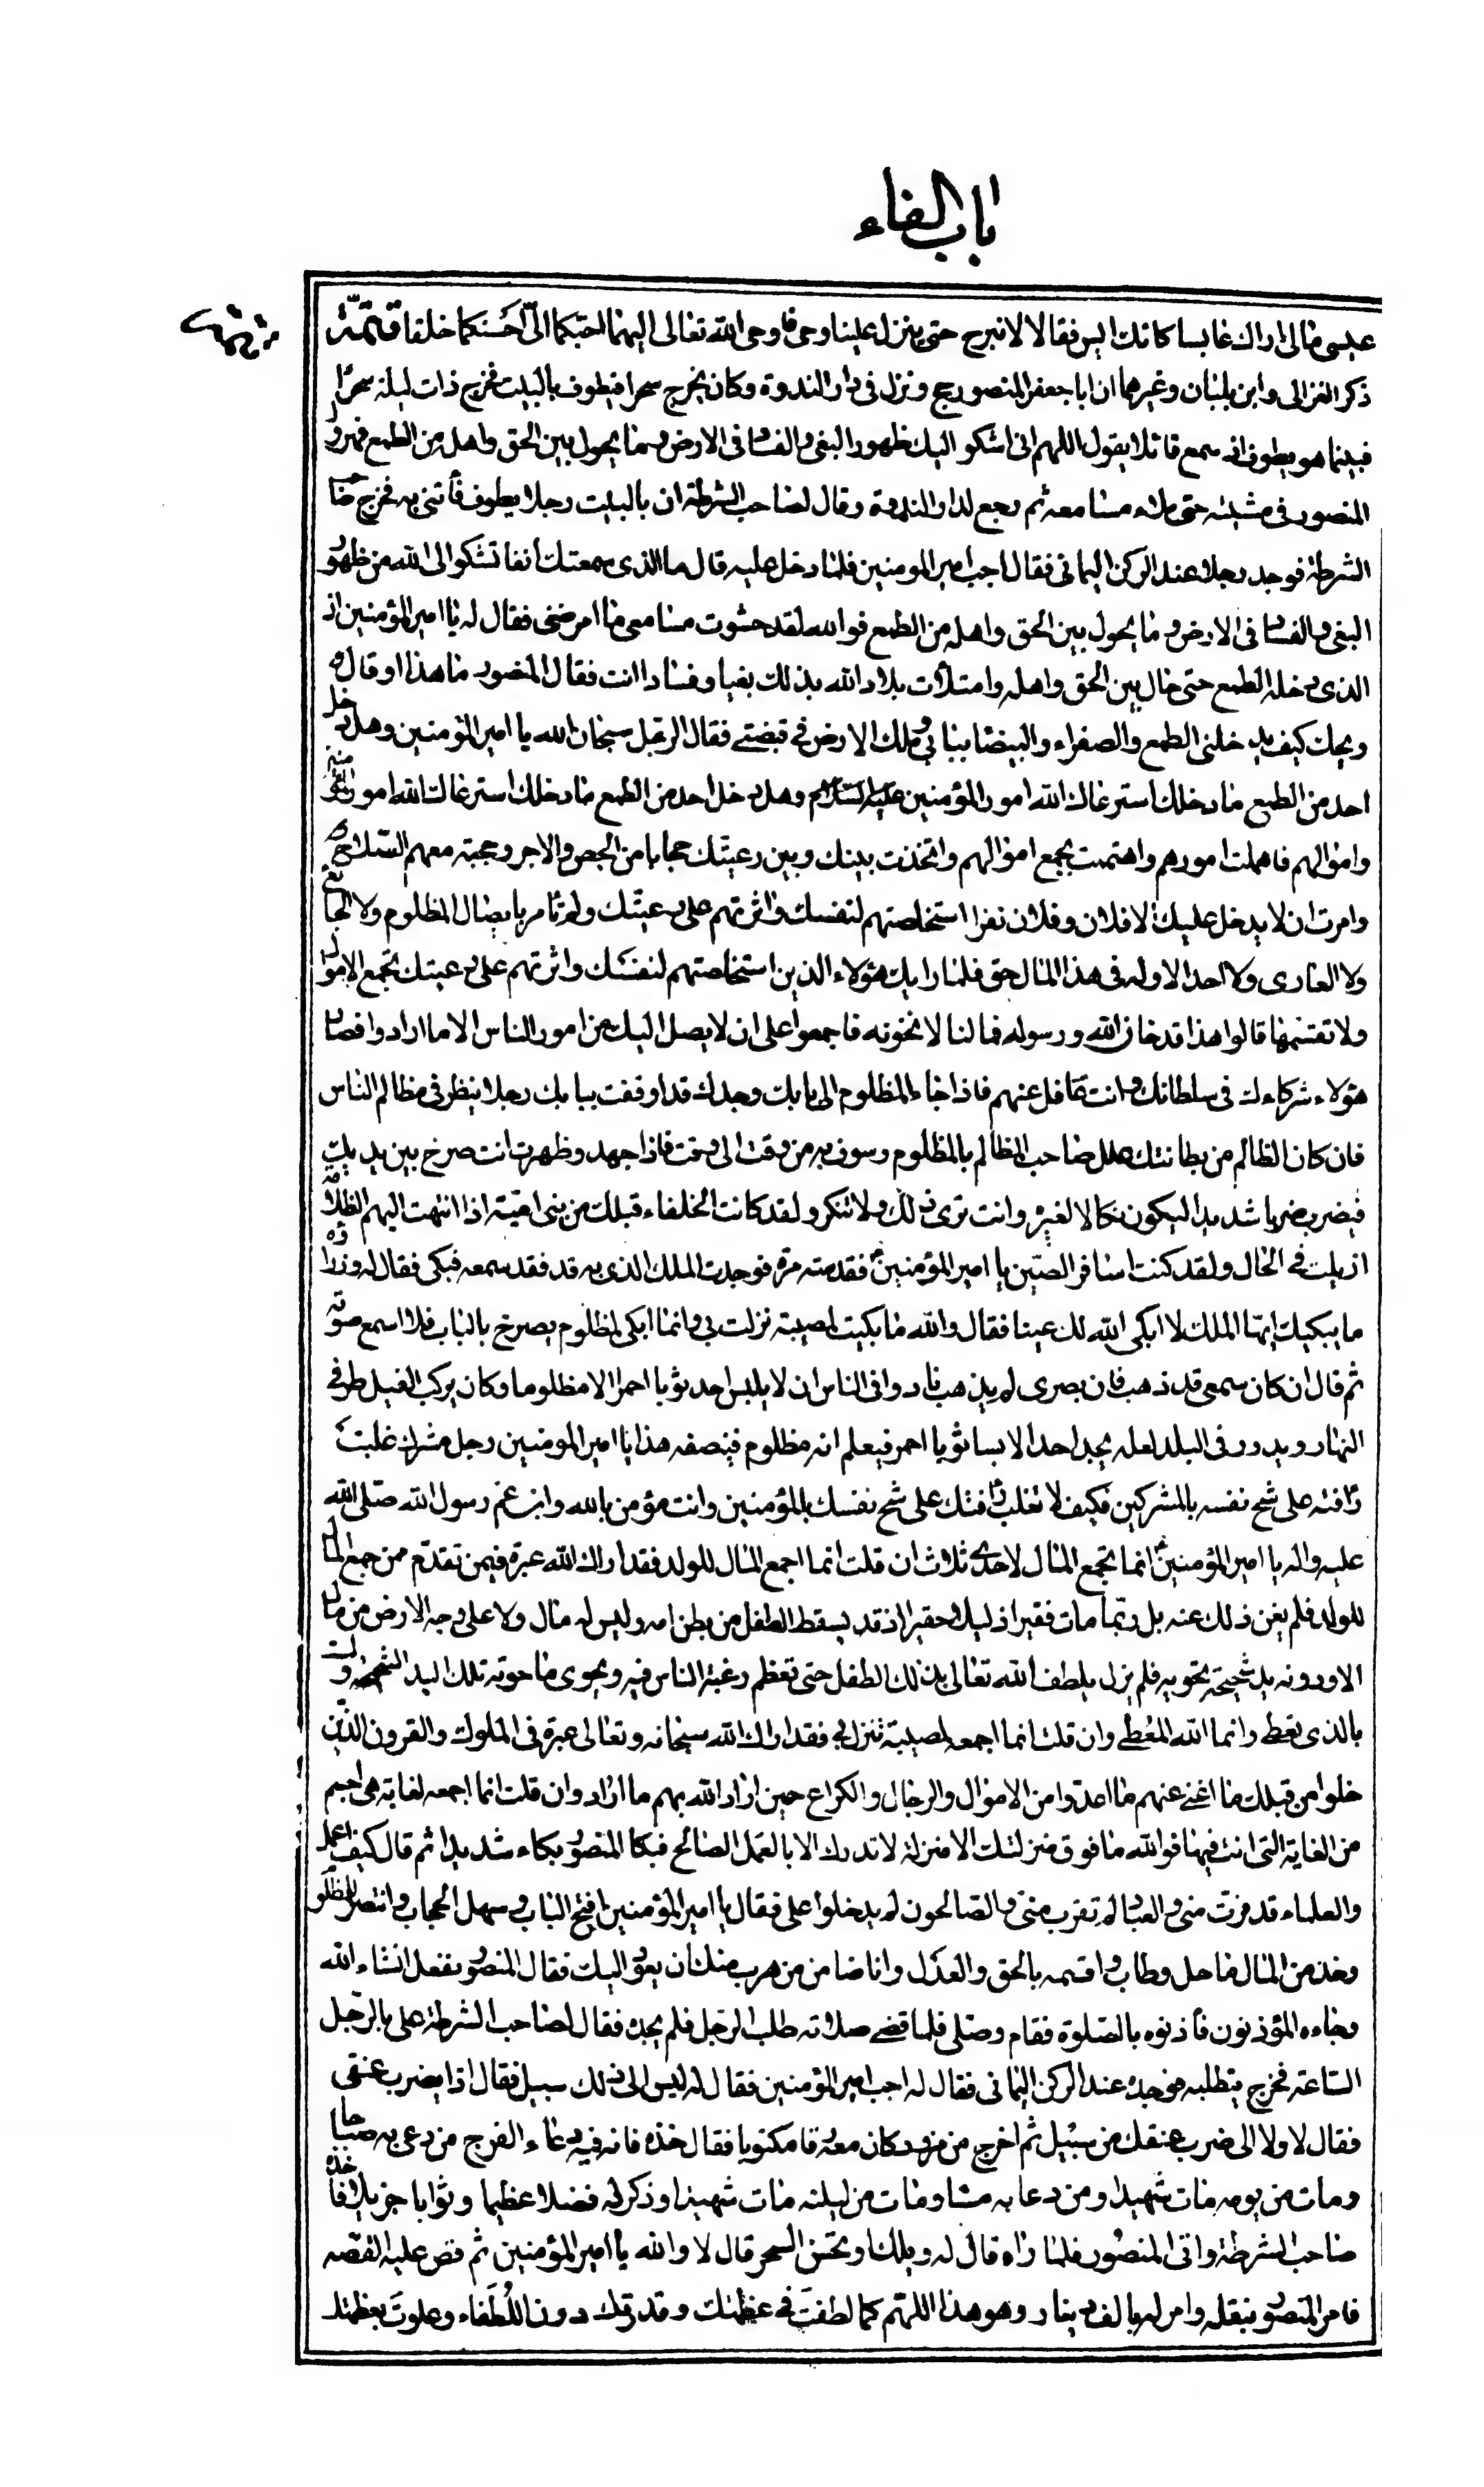 باب الفاء
عيسى مالى اراك عابسا كانك ايس فقالا لا نبرح حتى ينزل علينا وحى فاوحى الله تعالى اليهما احبكما الىّ احسنكما خلقا تتمّة
تتمة
ذكر الغزالى وابن بلبان وغيرهما ان ابا جعفر المنصور حج ونزل فى دار الندوة وكان يخرج سحرا فيطوف بالبيت فخرج ذات ليلة سحرًا
فبينما هو يطوف اذ سمع قائلا يقول اللهم انى اشكو اليك ظهور البغى والفساد فى الارض وما يحول بين الحق واهله من الطمع فهرول
المنصور فى مشيته حتى ملاء مسامعه ثم رجع لدار الندوة وقال لصاحب الشرطة ان بالبيت رجلا يطوف فأتنى به فخرج صاحب
الشرطة فوجد رجلا عند الركن اليمانى فقال اجب امير المومنين فلما دخل عليه قال ما الذى سمعتك انفا تشكو الى الله من ظهور
البغى والفساد فى الارض وما يحول بين الحق واهله من الطمع فوالله لقد حشوت مسامعى ما امرضنى فقال له يا امير المؤمنين ان
الذى دخله الطمع حتى حال بين الحق واهله وامتلأت بلاد الله بذلك بغيا وفسادا انت فقال المنصور ما هذا او قال
ويحك كيف يدخلنى الطمع والصفراء والبيضاء ببابى وملك الارض فى قبضتى فقال الرجل سبحان الله يا امير المؤمنين وهل دخل
احد من الطمع ما دخلك استرعاك الله امور المؤمنين عليه السلام وهل دخل احد من الطمع ما دخلك استرعاك الله امور المؤمنين
واموالهم فاهملت امورهم واهتممت بجمع اموالهم واتخذت بينك وبين رعيتك حجابا من الجص والاجر وحجبة معهم السلاح
وامرت ان لا يدخل عليك الا فلان وفلان نفرا استخلصتهم لنفسك واثرتهم على رعيتك ولم تامر بايصال المظلوم ولا الجايع
ولا العارى ولا احد الا وله فى هذا المال حق فلما رايك هؤلاء الذين استخلصتهم لنفسك واثرتهم على رعيتك تجمع الاموال
ولا تقسمها قالوا هذا قد خان الله ورسوله فما لنا لا نخونه فاجمعوا على ان لا يصل اليك من امور الناس الا ما ارادوا فصار
هؤلاء شركاءك فى سلطانك وانت غافل عنهم فاذا جاء المظلوم الى بابك وجدك قد اوقفت ببابك رجلا ينظر فى مظالم الناس
فان كان الظالم من بطانتك علل صاحب المظالم بالمظلوم وسوف به من وقت الى وقت فاذا جهد وظهرت انت صرخ بين يديك
فيضرب ضربا شديدا ليكون نكالا لغيره وانت ترى ذلك ولا تنكر ولقد كانت الخلفاء قبلك من بنى امية اذا انتهت اليهم الظلامة
ازيلت فى الحال ولقد كنت اسافر الصين يا امير المؤمنين فقدمته مرة فوجدت الملك الذى به قد فقد سمعه فبكى فقال له وزراؤه
ما يبكيك ايها الملك لا ابكى الله لك عينا فقال والله ما بكيت لمصيبة نزلت بى وانما ابكى لمظلوم يصرخ بالباب فلا اسمع صوته
ثم قال ان كان سمعى قد ذهب فان بصرى لم يذهب نادوا فى الناس ان لا يلبس احد ثوبا احمر الا مظلوما وكان يركب الفيل طرفى
النهار ويدور فى البلد لعله يجد احدا لابسا ثوبا احمر فيعلم انه مظلوم فينصفه هذا يا امير المومنين رجل مشرك غلبت
رافته على شح نفسه بالمشركين فكيف لا تغلب رافتك على شح نفسك بالمؤمنين وانت مؤمن بالله وابن عم رسول الله صلى الله
عليه واله يا امير المؤمنين انما تجمع المال لاحدى ثلاث ان قلت انما اجمع المال للولد فقد اراك الله عبرة فيمن تقدم ممن جمع المال
للولد فلم يغن ذلك عنه بل ربما مات فقيرا ذليلا حقيرا اذ قد يسقط الطفل من بطن امه وليس له مال ولا على وجه الارض من مال
الا ودونه يد شحيحة تحويه فلم يزل يلطف الله تعالى بذلك الطفل حتى تعظم رغبة الناس فيه ويحوى ما حوته تلك اليد الشحيحة ولست
بالذى تعطى وانما الله المعطى وان قلت انما اجمعه لمصيبة تنزل بى فقد اراك الله سبحانه وتعالى عبرة فى الملوك والقرون الذين
خلوا من قبلك ما اغنى عنهم ما اعدوا من الاموال والرجال والكراع حين اراد الله بهم ما اراد وان قلت انما اجمعه لغاية هى اجسم
من الغاية التى انت فيها فوالله ما فوق منزلتك الا منزلة لا تدرك الا بالعمل الصالح فبكا المنصور بكاء شديدا ثم قال كيف اعمل
والعلماء قد فرت منى والعباد لم تقرب منى والصالحون لم يدخلوا على فقال يا امير المؤمنين افتح الباب وسهل الحجاب وانتصر للمظلوم
وخذ من المال ما حل وطاب واقسمه بالحق والعدل وانا ضامن من هرب منك ان يعود اليك فقال المنصور نفعل انشاء الله
وجاءه المؤذنون فأذنوه بالصلوة فقام وصلى فلما قضى صلاته طلب الرجل فلم يجده فقال لصاحب الشرطة على بالرجل
الساعة فخرج يتطلبه فوجده عند الركن اليمانى فقال له اجب امير المؤمنين فقال له ليس الى ذلك سبيل فقال اذا يضرب عنقى
فقال لا ولا الى ضرب عنقك من سبيل ثم اخرج من مزود كان معه رقا مكتوبا فقال خذه فانه فيه دعاء الفرج من دعى به صباحا
ومات من يومه مات شهيدا ومن دعا به مساء ومات من ليلته مات شهيدا وذكر له فضلا عظيما وثوابا جزيلا فاخذه
صاحب الشرطة واتى المنصور فلما راه قال له ويلك او تحسن السحر قال لا والله يا امير المؤمنين ثم قص عليه القصه
فامر المنصور بنقله وامر له بالف دينار وهو هذا اللهم كما لطفت فى عظمتك وقدرتك دون اللطفاء وعلوت بعظمتك